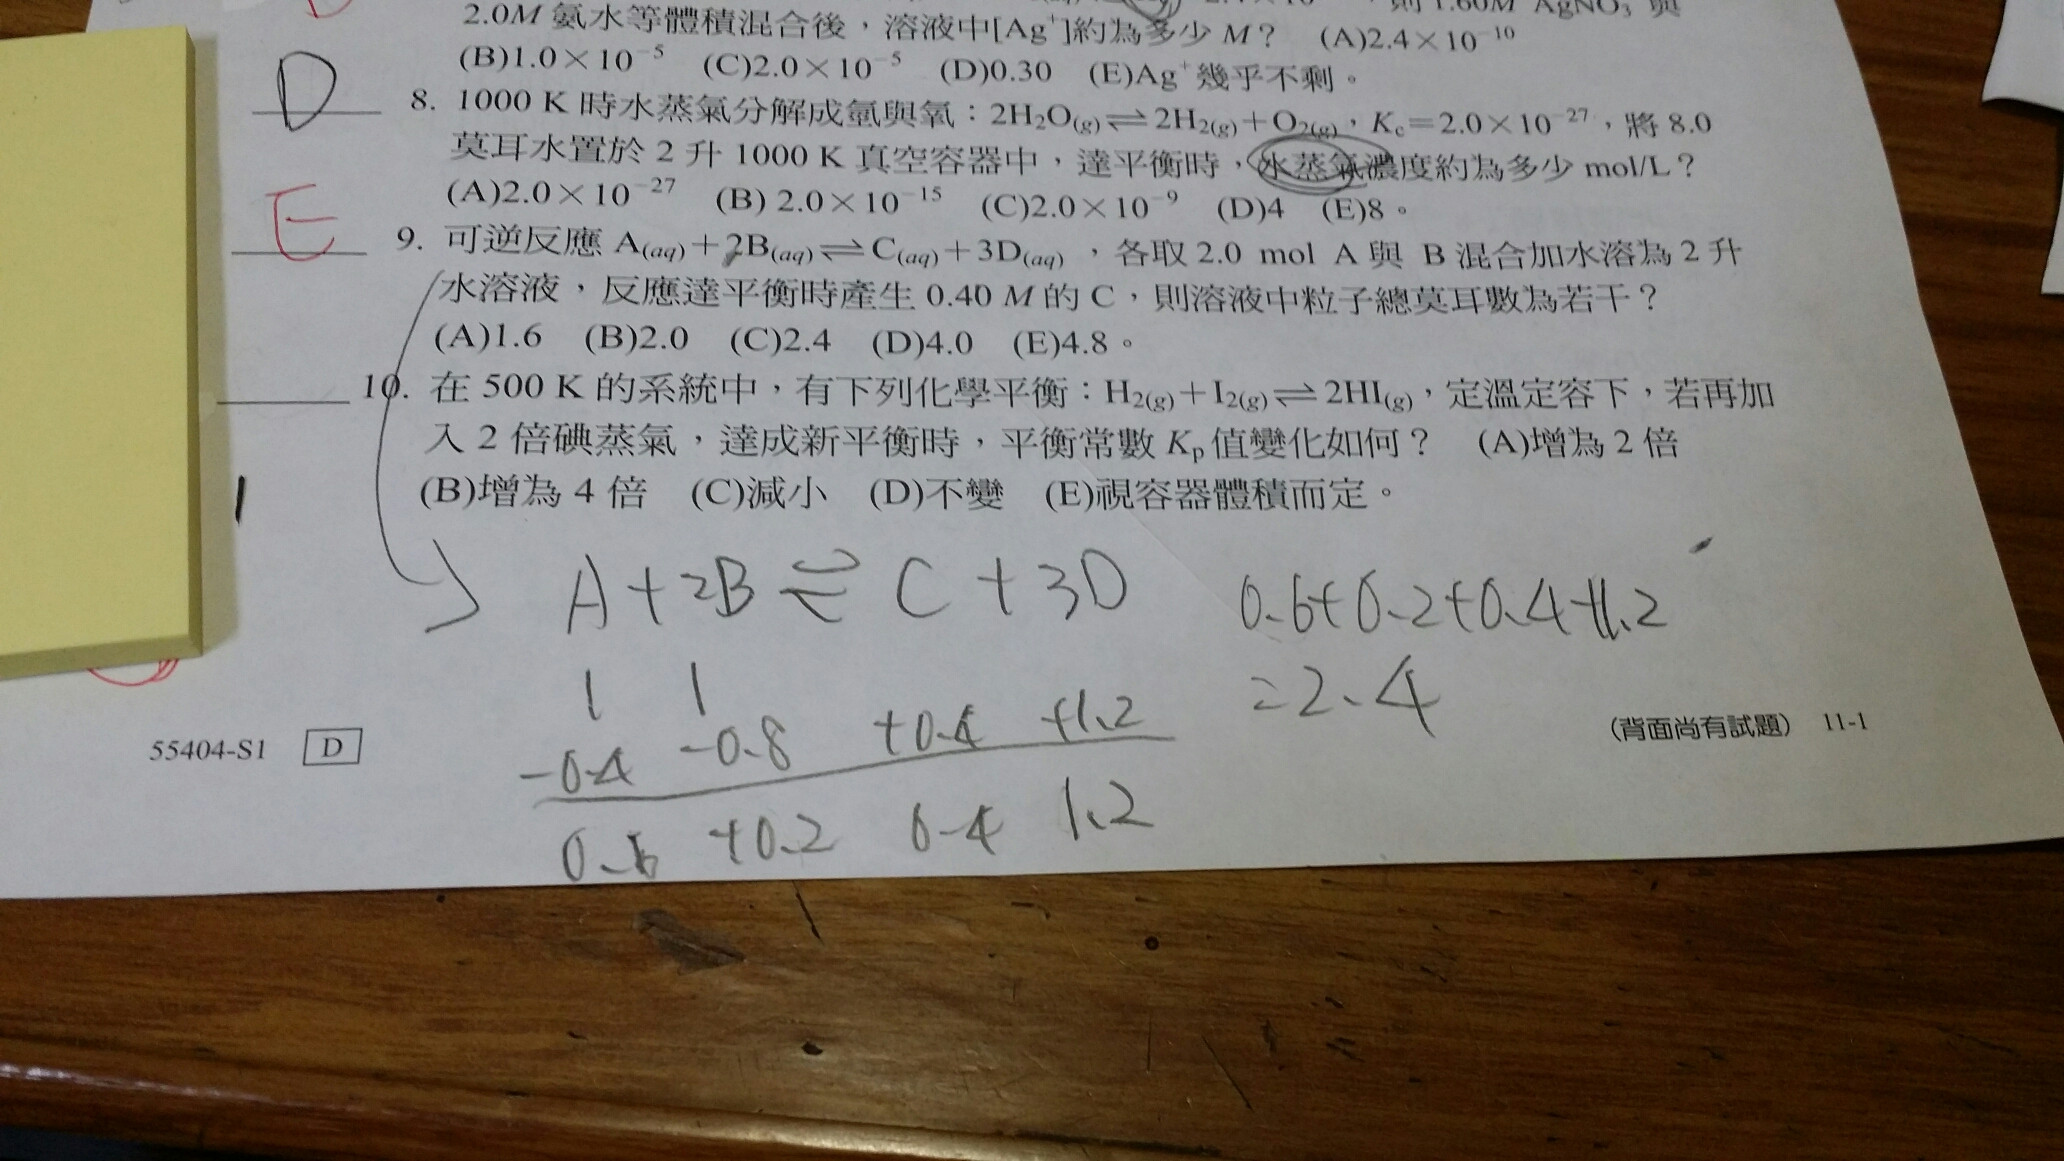 2.0M 氨水等體積混合後，溶液中[Ag⁺]約為多少 M？ (A)2.4×10⁻¹⁰
(B)1.0×10⁻⁵ (C)2.0×10⁻⁵ (D)0.30 (E)Ag⁺幾乎不剩。
D
8. 1000 K 時水蒸氣分解成氫與氧：2H₂O(g)⇌2H₂(g)+O₂(g)，Kc=2.0×10⁻²⁷，將 8.0
莫耳水置於 2 升 1000 K 真空容器中，達平衡時，水蒸氣濃度約為多少 mol/L？
(A)2.0×10⁻²⁷ (B) 2.0×10⁻¹⁵ (C)2.0×10⁻⁹ (D)4 (E)8。
E
9. 可逆反應 A(aq)+2B(aq)⇌C(aq)+3D(aq)，各取 2.0 mol A 與 B 混合加水溶為 2 升
水溶液，反應達平衡時產生 0.40 M 的 C，則溶液中粒子總莫耳數為若干？
(A)1.6 (B)2.0 (C)2.4 (D)4.0 (E)4.8。
10. 在 500 K 的系統中，有下列化學平衡：H₂(g)+I₂(g)⇌2HI(g)，定溫定容下，若再加
入 2 倍碘蒸氣，達成新平衡時，平衡常數 Kp 值變化如何？ (A)增為 2 倍
(B)增為 4 倍 (C)減小 (D)不變 (E)視容器體積而定。
A+2B⇌C+3D
1 1
-0.4 -0.8 +0.4 +1.2
0.6 +0.2 0.4 1.2
0.6+0.2+0.4+1.2
=2.4
55404-S1 D
（背面尚有試題） 11-1